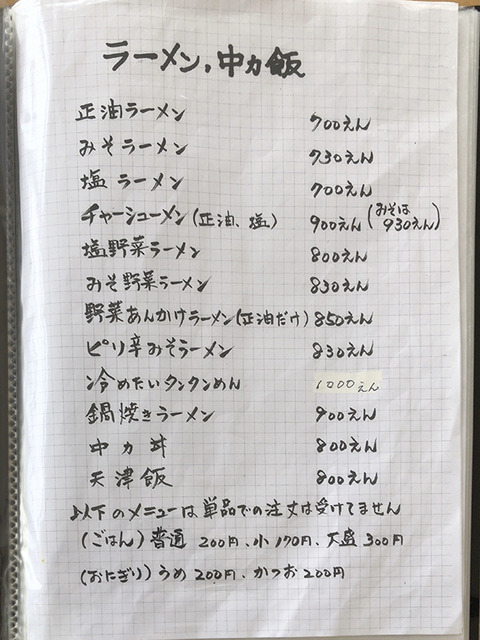 ラーメン,中カ飯
正油ラーメン 700えん
みそラーメン 730えん
塩ラーメン 700えん
チャーシューメン(正油、塩) 900えん(みそは930えん)
塩野菜ラーメン 800えん
みそ野菜ラーメン 830えん
野菜あんかけラーメン(正油だけ) 850えん
ピリ辛みそラーメン 830えん
冷めたいタンタンめん 1000えん
鍋焼きラーメン 900えん
中カ丼 800えん
天津飯 800えん
以下のメニューは単品での注文は受けてません
(ごはん)普通 200円、小170円、大盛300円
(おにぎり)うめ200円、かつお200円